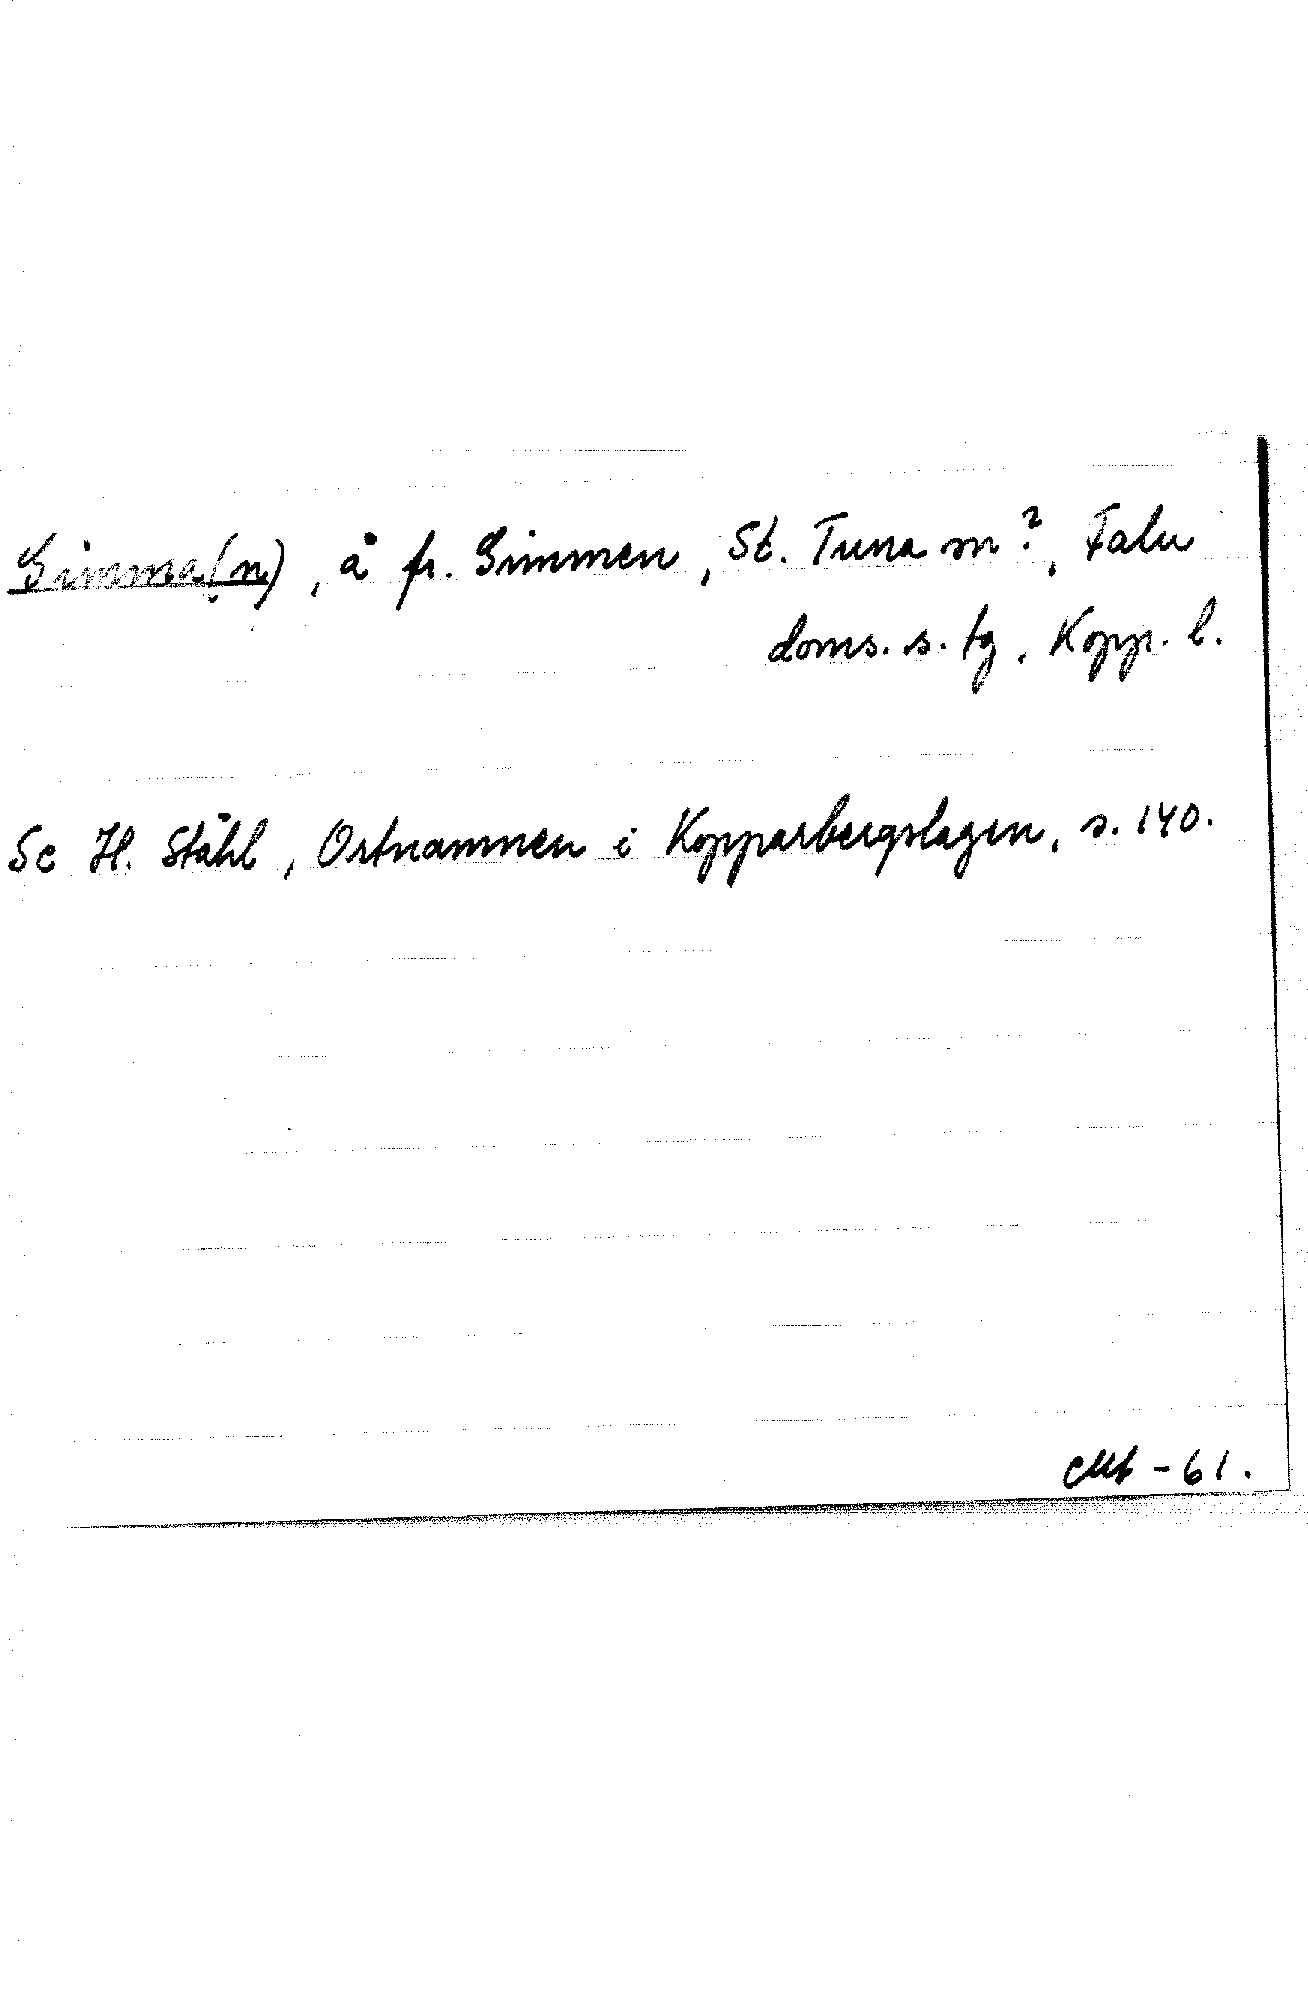 Gimma(n), å fr. Gimmen, St. Tuna sn?, Falu
doms. s. tg, Kopp. l.
Se H. Ståhl, Ortnamnen i Kopparbergslagen, s. 140.
-61.